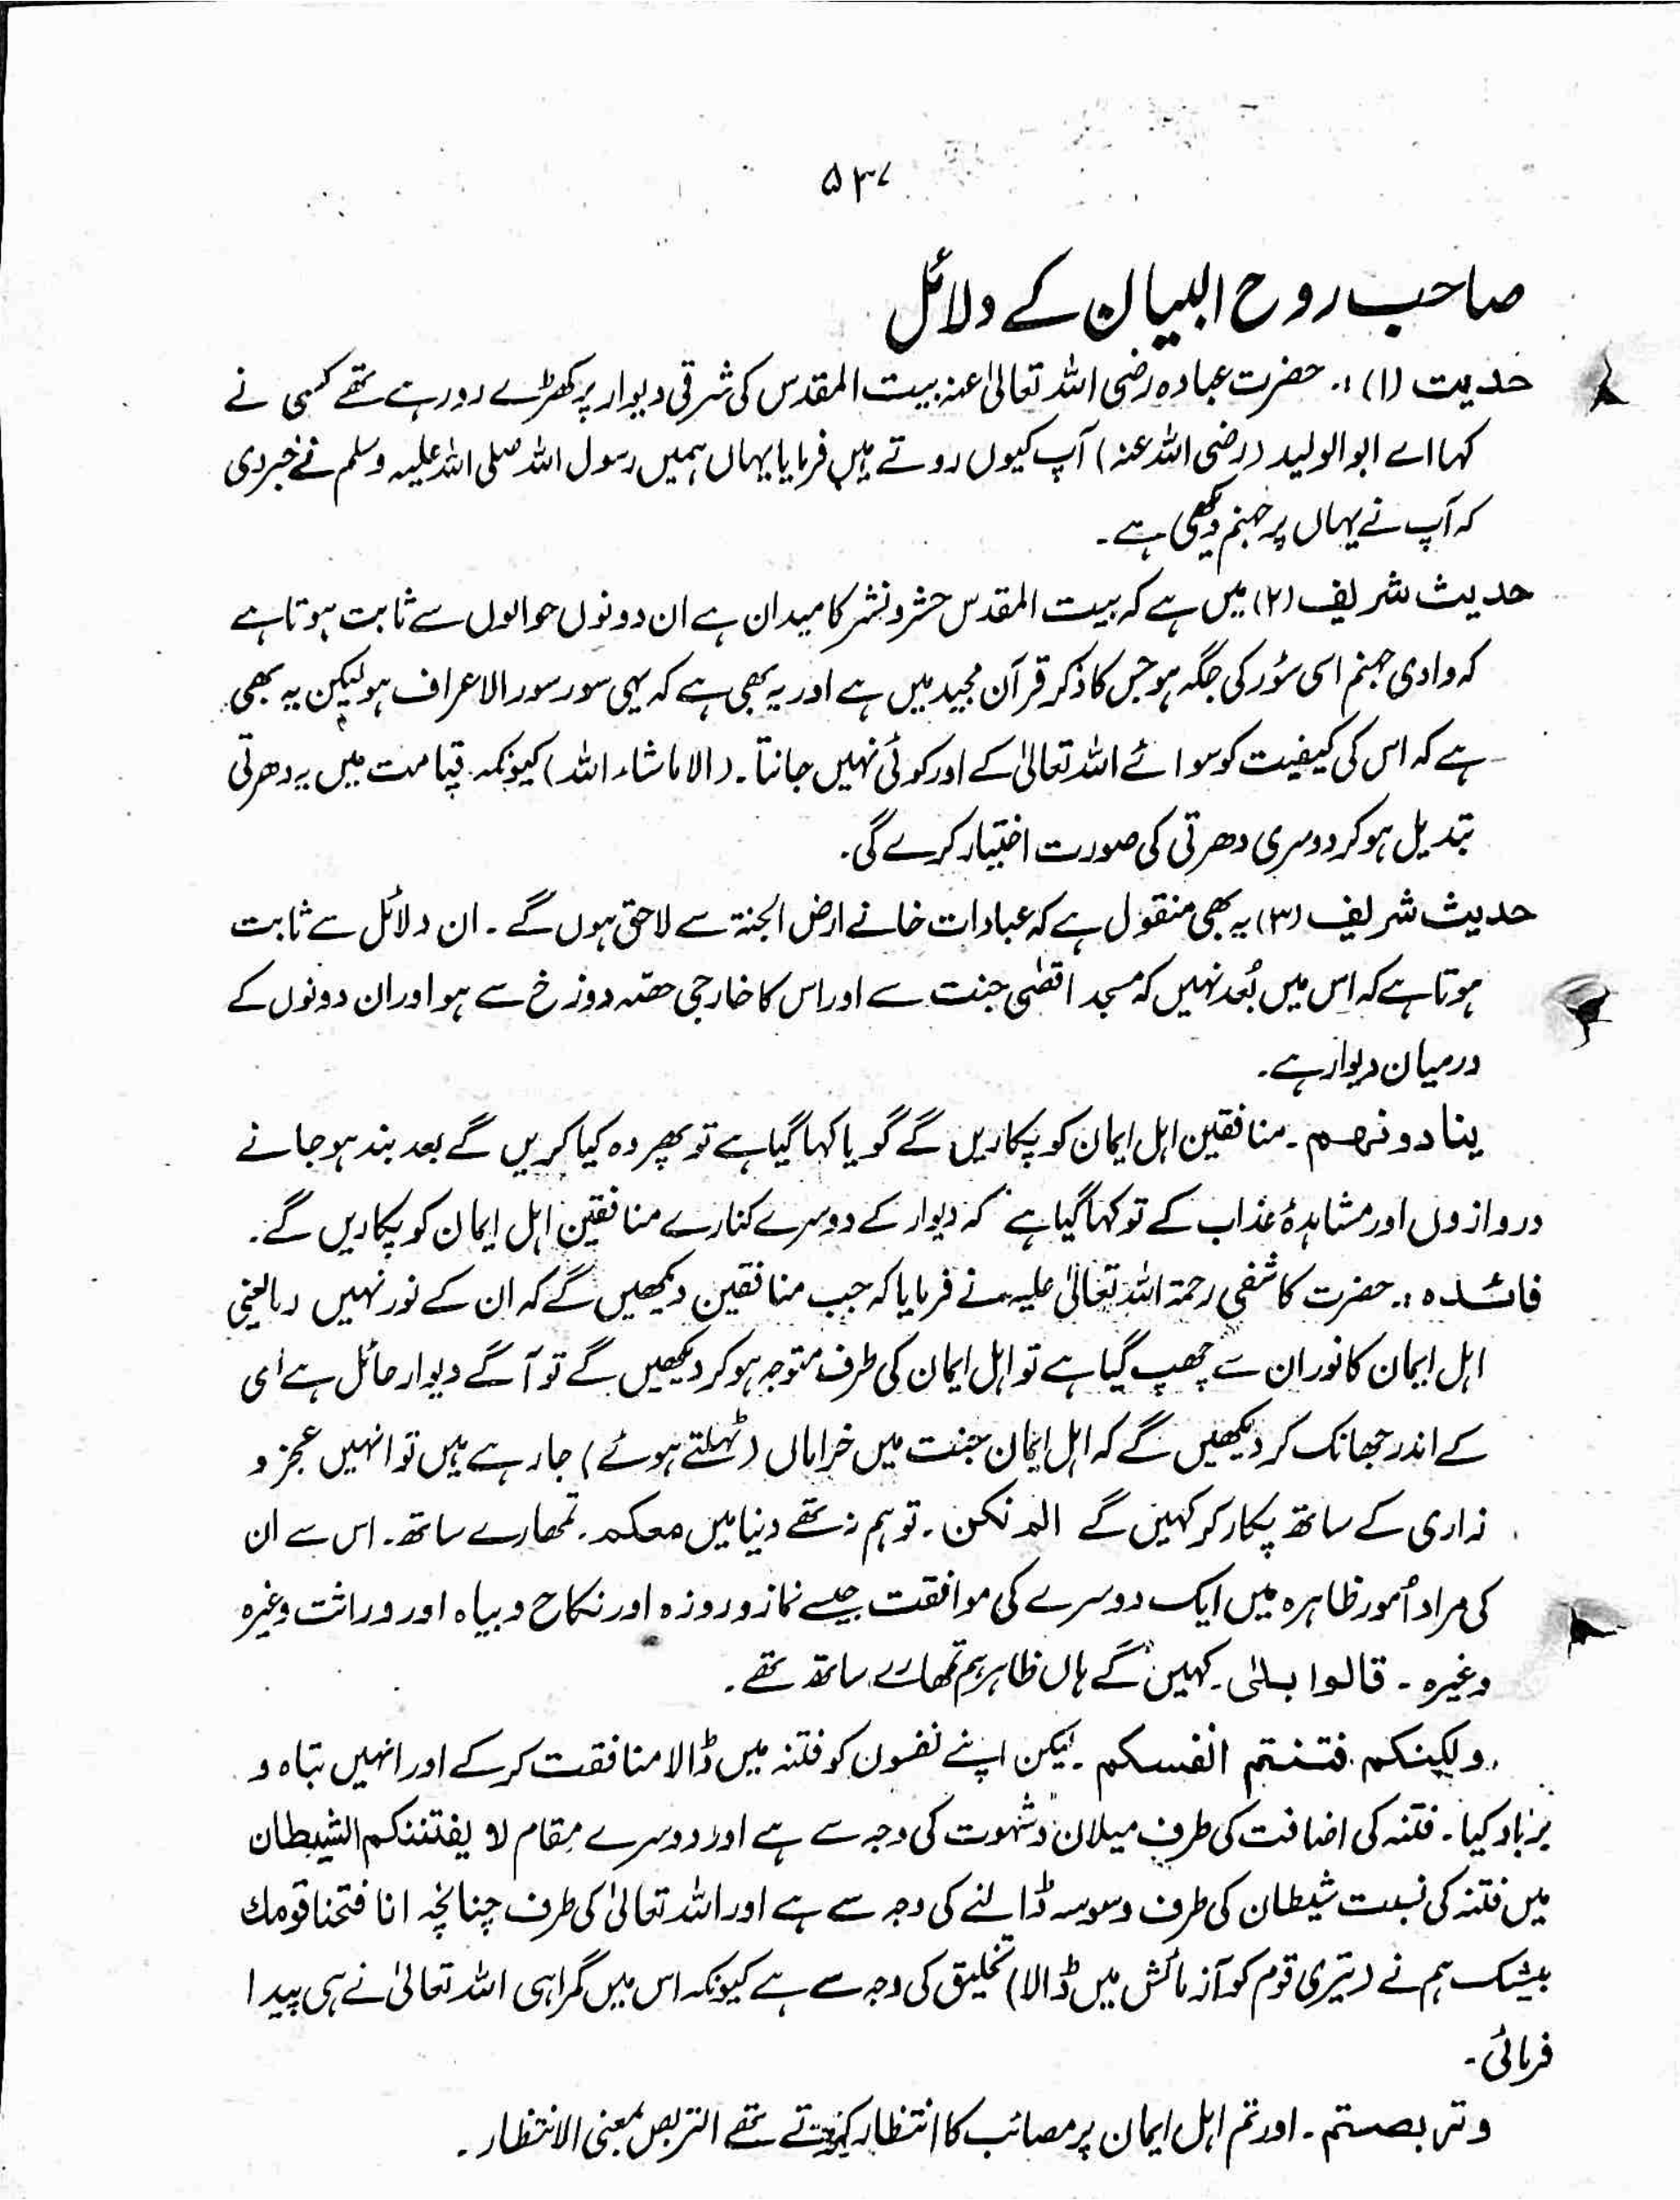 ۵۳۷
صاحب روح البیان کے دلائل
حدیث (۱) :. حضرت عبادہ رضی اللہ تعالیٰ عنہ بیت المقدس کی شرقی دیوار پر کھڑے رو رہے تھے کسی نے
کہا اے ابو الولید (رضی اللہ عنہ) آپ کیوں روتے ہیں فرمایا یہاں ہمیں رسول اللہ صلی اللہ علیہ وسلم نے خبر دی
کہ آپ نے یہاں پر جہنم دیکھی ہے۔
حدیث شریف (۲) میں ہے کہ بیت المقدس حشر و نشر کا میدان ہے ان دونوں حوالوں سے ثابت ہوتا ہے
کہ وادی جہنم اسی سُور کی جگہ ہو جس کا ذکر قرآن مجید میں ہے اور یہ بھی ہے کہ یہی سور سور الاعراف ہو لیکن یہ بھی
ہے کہ اس کی کیفیت کو سوائے اللہ تعالیٰ کے اور کوئی نہیں جانتا۔ (الا ماشاء اللہ) کیونکہ قیامت میں یہ دھرتی
تبدیل ہو کر دوسری دھرتی کی صورت اختیار کرے گی۔
حدیث شریف (۳) یہ بھی منقول ہے کہ عبادات خانے ارض الجنۃ سے لاحق ہوں گے۔ ان دلائل سے ثابت
ہوتا ہے کہ اس میں بُعد نہیں کہ مسجد اقصٰی جنت سے اور اس کا خارجی حصّہ دوزخ سے ہو اور ان دونوں کے
درمیان دیوار ہے۔
ینادونہم۔ منافقین اہل ایمان کو پکاریں گے گویا کہا گیا ہے تو پھر وہ کیا کریں گے بعد بند ہو جانے
دروازوں اور مشاہدۂ عذاب کے تو کہا گیا ہے کہ دیوار کے دوسرے کنارے منافقین اہل ایمان کو پکاریں گے۔
فائدہ :. حضرت کاشفی رحمۃ اللہ تعالیٰ علیہ نے فرمایا کہ جب منافقین دیکھیں گے کہ ان کے نور نہیں (یعنی
اہل ایمان کا نور ان سے چھپ گیا ہے تو اہل ایمان کی طرف متوجہ ہو کر دیکھیں گے تو آگے دیوار حائل ہے اسی
کے اندر جھانک کر دیکھیں گے کہ اہل ایمان جنت میں خراماں (ٹہلتے ہوئے) جا رہے ہیں تو انہیں عجز و
زاری کے ساتھ پکار کر کہیں گے الم نکن۔ تو ہم نہ تھے دنیا میں معکم۔ تمھارے ساتھ۔ اس سے ان
کی مراد اُمور ظاہرہ میں ایک دوسرے کی موافقت جیسے نماز و روزہ اور نکاح و بیاہ اور وراثت وغیرہ
وغیرہ۔ قالوا بلیٰ۔ کہیں گے ہاں ظاہر ہم تمھارے ساتھ تھے۔
ولکینکم فتنتم انفسکم۔ لیکن اپنے نفسوں کو فتنہ میں ڈالا منافقت کر کے اور انہیں تباہ و
برباد کیا۔ فتنہ کی اضافت کی طرف میلان و شہوت کی وجہ سے ہے اور دوسرے مقام لا یفتننکم الشیطان
میں فتنہ کی نسبت شیطان کی طرف وسوسہ ڈالنے کی وجہ سے ہے اور اللہ تعالیٰ کی طرف چنانچہ انا فتحنا قومك
بیشک ہم نے (تیری قوم کو آزمائش میں ڈالا) تخلیق کی وجہ سے ہے کیونکہ اس میں گمراہی اللہ تعالیٰ نے ہی پیدا
فرمائی۔
وتربصتم۔ اور تم اہل ایمان پر مصائب کا انتظار کرتے تھے التربص بمعنی الانتظار۔